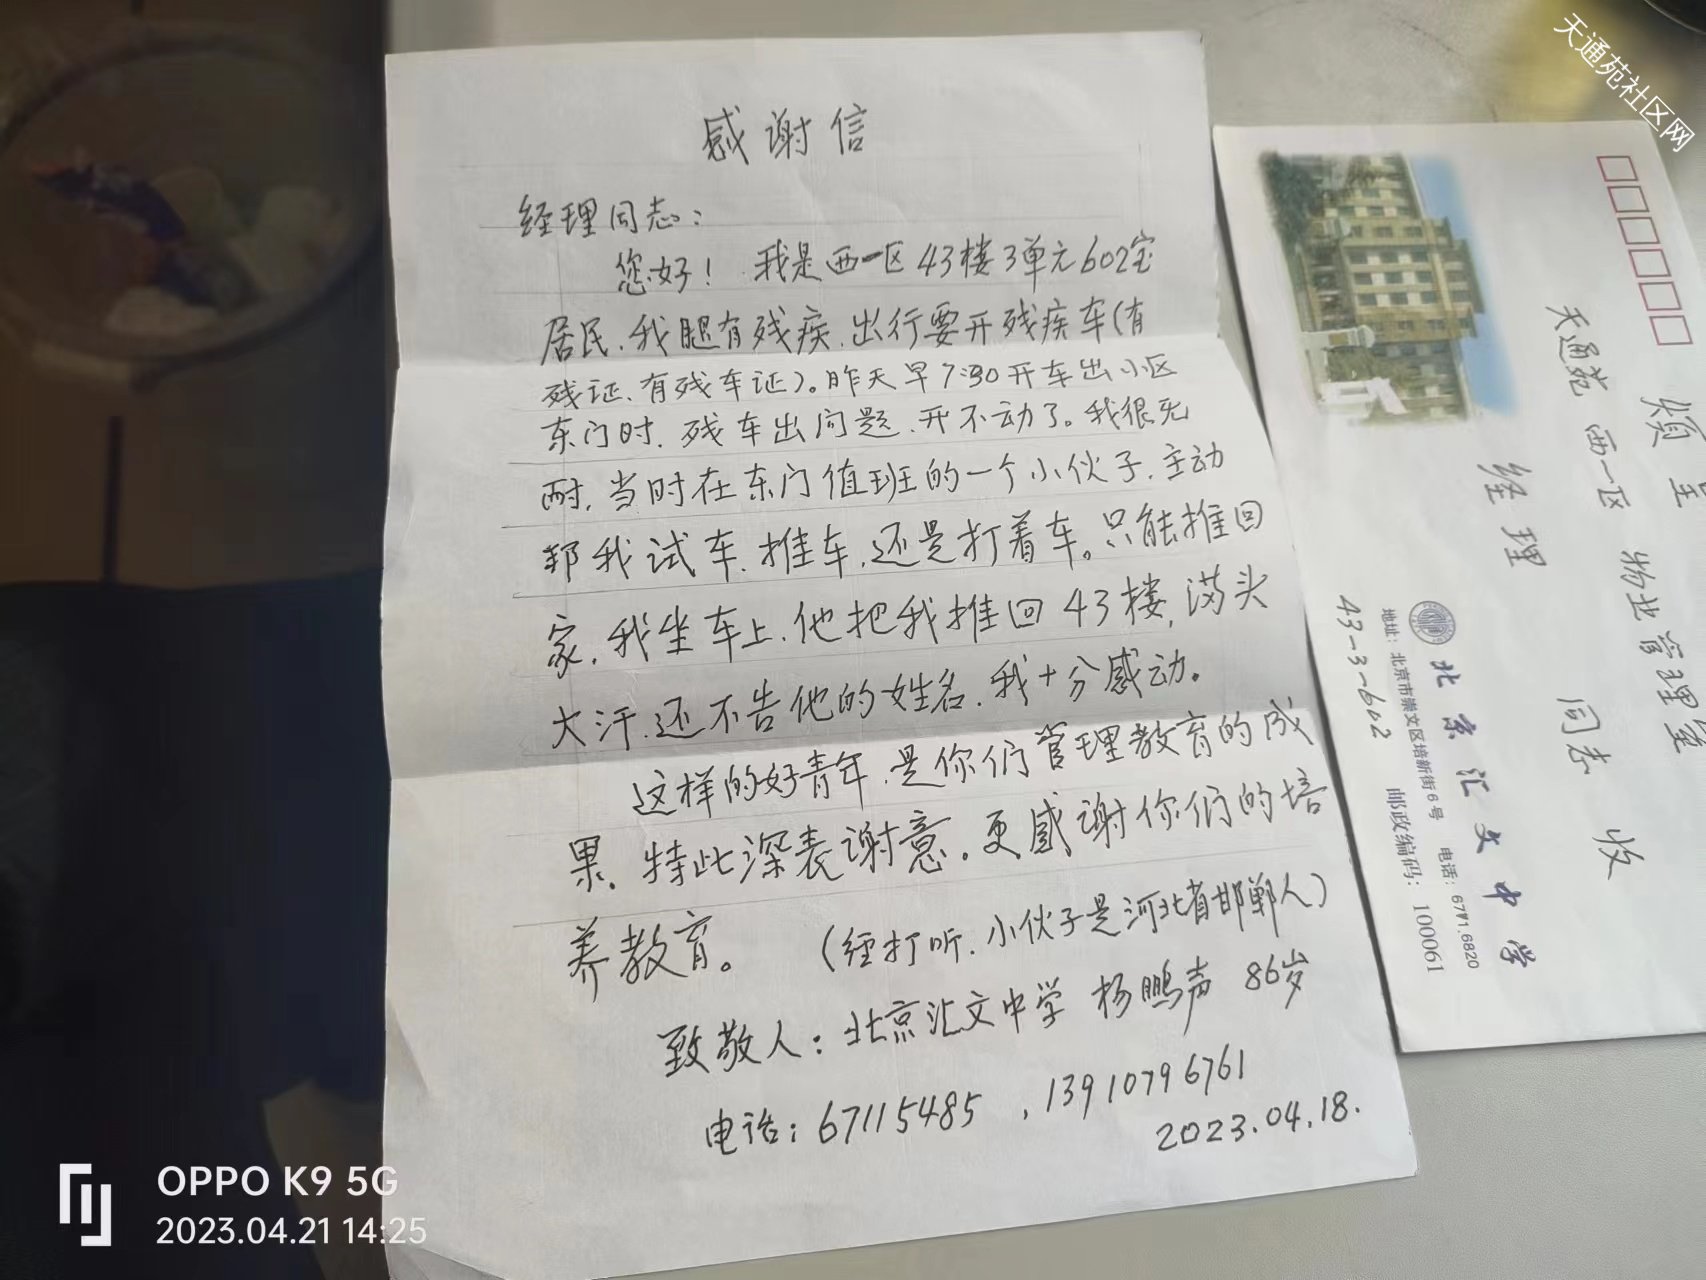 感谢信
经理同志：
您好！ 我是西一区43楼3单元602室
居民、我腿有残疾、出行要开残疾车（有
残证、有残车证）。昨天早7:30开车出小区
东门时，残车出问题、开不动了。我很无
耐，当时在东门值班的一个小伙子，主动
邦我试车、推车，还是打着车。只能推回
家，我坐车上，他把我推回43楼，满头
大汗，还不告他的姓名，我十分感动。
这样的好青年，是你们管理教育的成
果，特此深表谢意，更感谢你们的培
养教育。 （经打听，小伙子是河北省邯郸人）
致敬人：北京汇文中学 杨鹏声 86岁
电话：67115485 ，13910796761
2023.04.18.
天通苑 西一区 物业管理室
经理 同志 收
43-3-602
北京汇文中学
地址：北京市崇文区培新街6号 电话：67
邮政编码：100061
天通苑社区网
OPPO K9 5G
2023.04.21 14:25